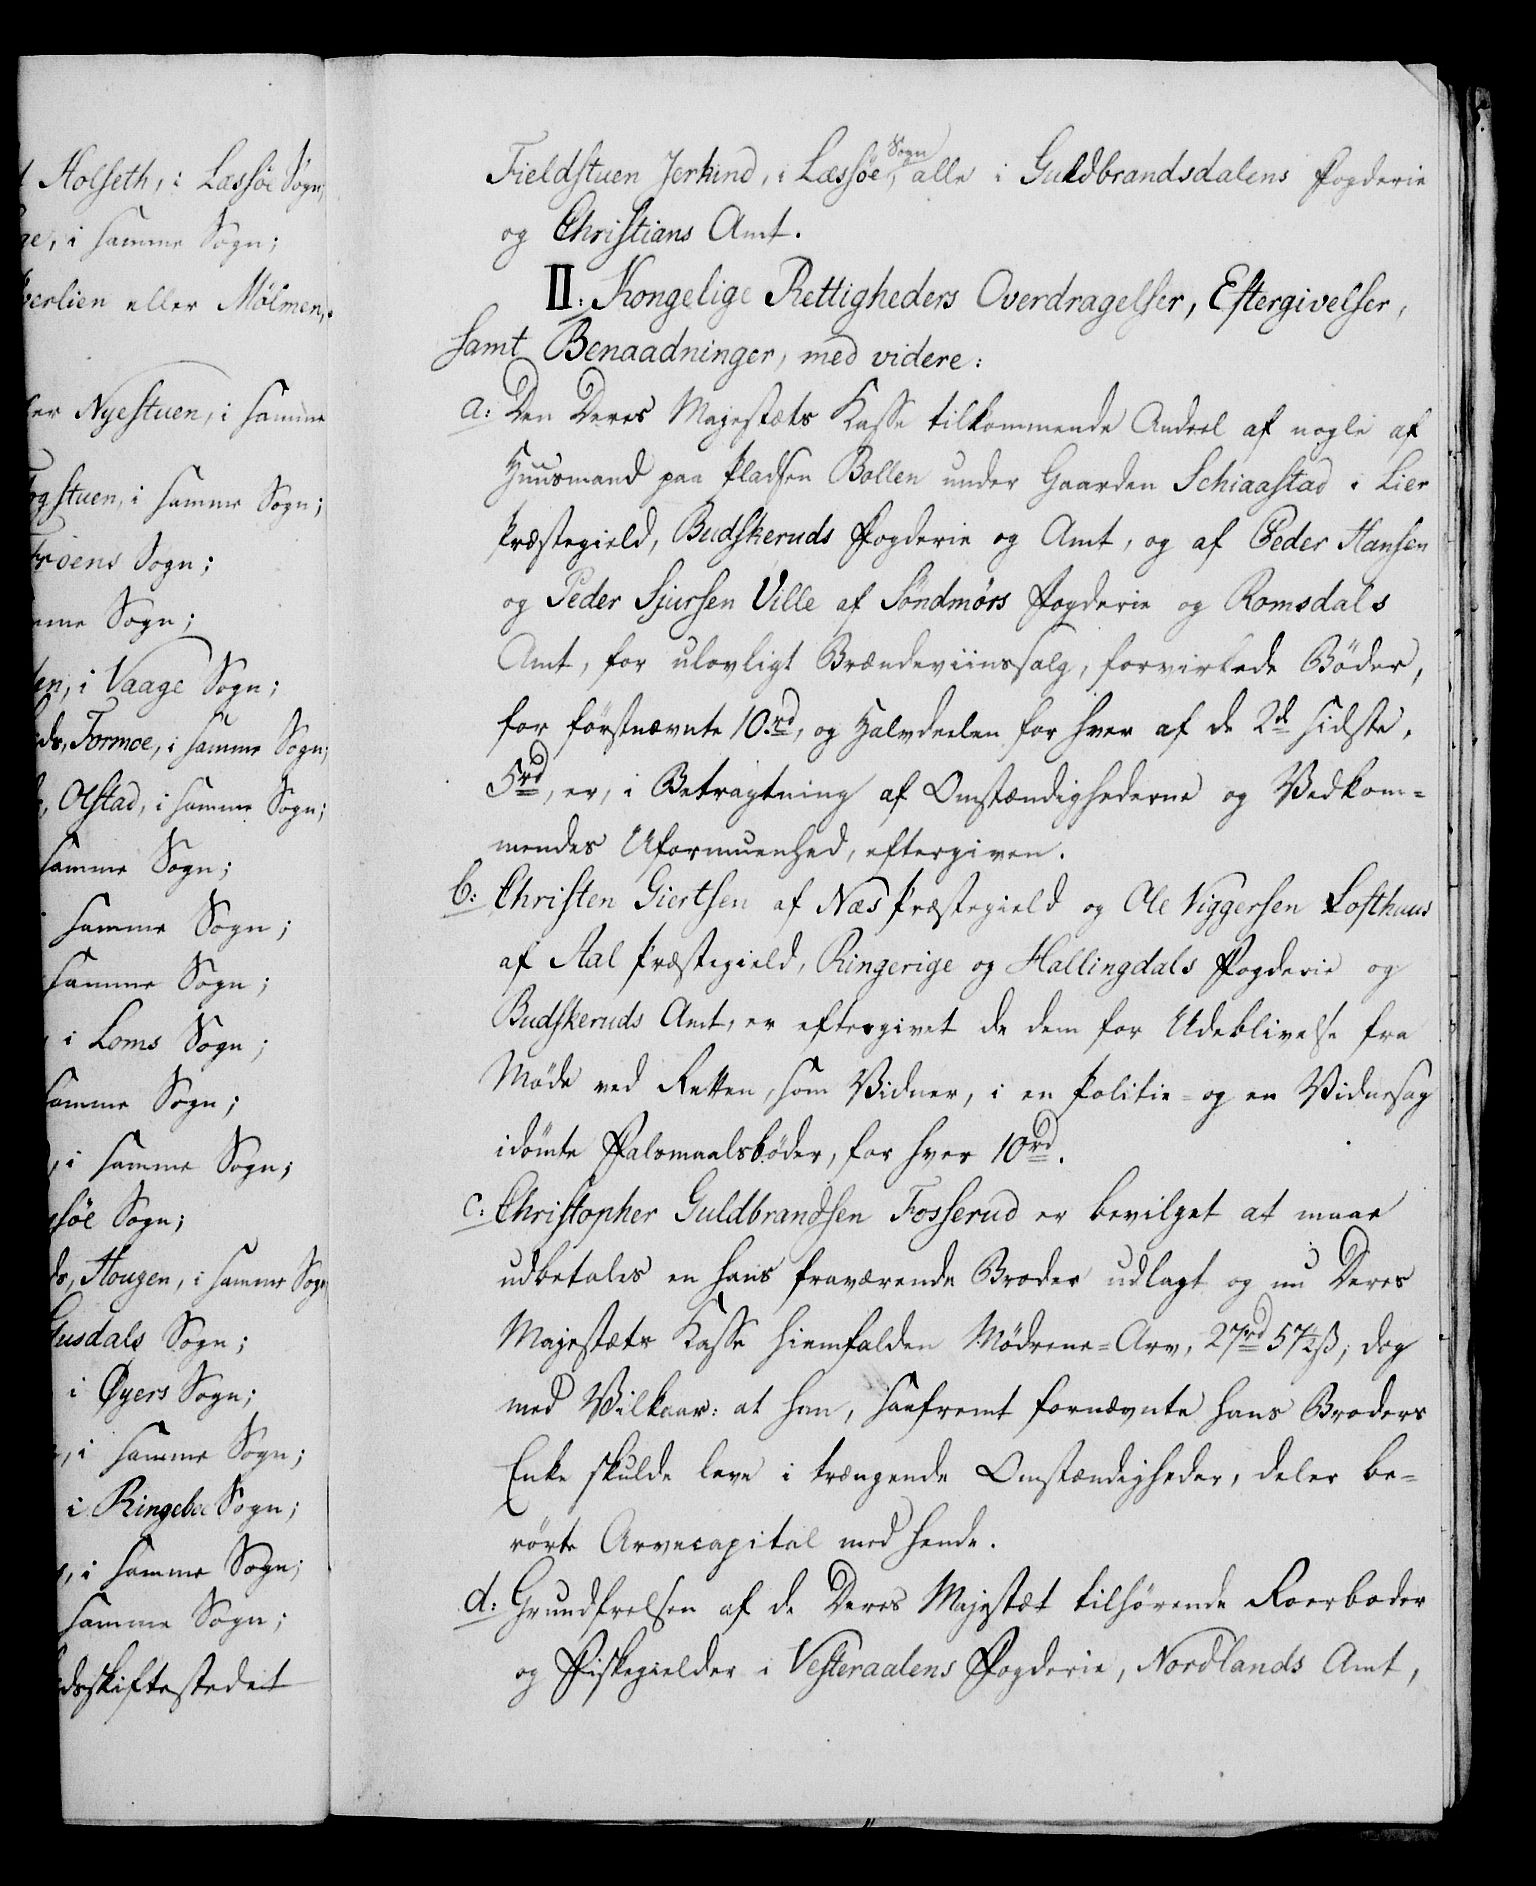 Holseth, i Læssöe Sogn,
i samme Sogn;
lien eller Mölmen,
Nyestuen, i samme
stuen, i samme Sogn;
Froens Sogn;
Sogn;
i Vaage Sogn;
Tormoe, i samme Sogn;
Olstad, i samme Sogn;
samme Sogn;
samme Sogn;
samme Sogn;
i Loms Sogn;
samme Sogn;
i samme Sogn;
söe Sogn;
Hougen, i samme Sogn
Gusdals Sogn;
i Øyers Sogn;
i samme Sogn;
i Ringeboe Sogn;
i samme Sogn;
samme Sogn;
dsskiftestedet
Fieldstuen Jerkind, i Læssöe Sogn, alle i Guldbrandsdalens Fogderie
og Christians Amt.
II: Kongelige Rettigheders Overdragelser, Eftergivelser,
samt Benaadninger, med videre:
a: Den Deres Majestæts Kasse tilkommende Andeel af nogle af
Huusmand paa Pladsen Bollen under Gaarden Schiaastad i Lier
Præstegield, Budskeruds Fogderie og Amt, og af Peder Hansen
og Peder Sjursen Ville af Söndmörs Fogderie og Romsdals
Amt, for ulovligt Brændeviinssalg, forvirkede Böder,
for förstnævnte 10 rd, og Halvdeelen for hver af de 2de sidste,
5 rd, er, i Betragtning af Omstændighederne og Vedkom=
mendes Uformuenhed, eftergiven.
b: Christen Giertsen af Næs Præstegield og Ole Viggersen Lofthuus
af Aal Præstegield, Ringerige og Hallingdals Fogderie og
Budskeruds Amt, er eftergivet de dem for Udeblivelse fra
Möde ved Retten, som Vidner, i en Politie= og en Vidnesag
idömte Falsmaalsböder, for hver 10 rd.
c: Christopher Guldbrandsen Fosserud er bevilget at maae
udbetales en hans fraværende Broder udlagt og nu Deres
Majestæts Kasse hiemfalden Mödrene=Arv, 27 rd 57½ ß; dog
med Vilkaar: at han, saafremt fornævnte hans Broders
Enke skulde leve i trængende Omstændigheder, deler be=
rörte Arvecapital med hende.
d: Grundfrelsen af de Deres Majestæt tilhörende Roerboder
og Fiskegielder i Vesteraalens Fogderie, Nordlands Amt,